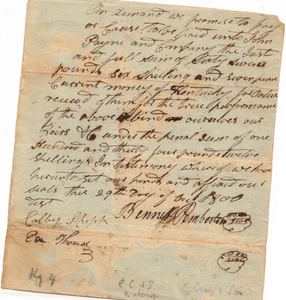 On demand we promise to pay
or Cause to be paid unto John
Payne and Company the Just
and full sum of Sixty seven
pounds six Shilling and
Current money of Kentucky for Value
received of them for the true performance
of the above we bind ourselves our
Heirs &C under the penal Sum of one
Hundred and thirty four pounds twelve
Shillings In testimony whereof we have
hereunto set our hands and affixed our
seals this 29th Day of 1800
Test
Bennett Pemberton
Thomas
Ky 4